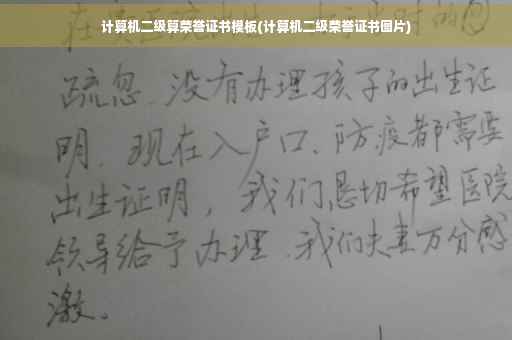 计算机二级算荣誉证书模板(计算机二级荣誉证书图片)
疏忽.没有办理孩子的出生证
明.现在入户口、防疫都需要
出生证明，我们恳切希望医院
领导给予办理.我们夫妻万分感
激。